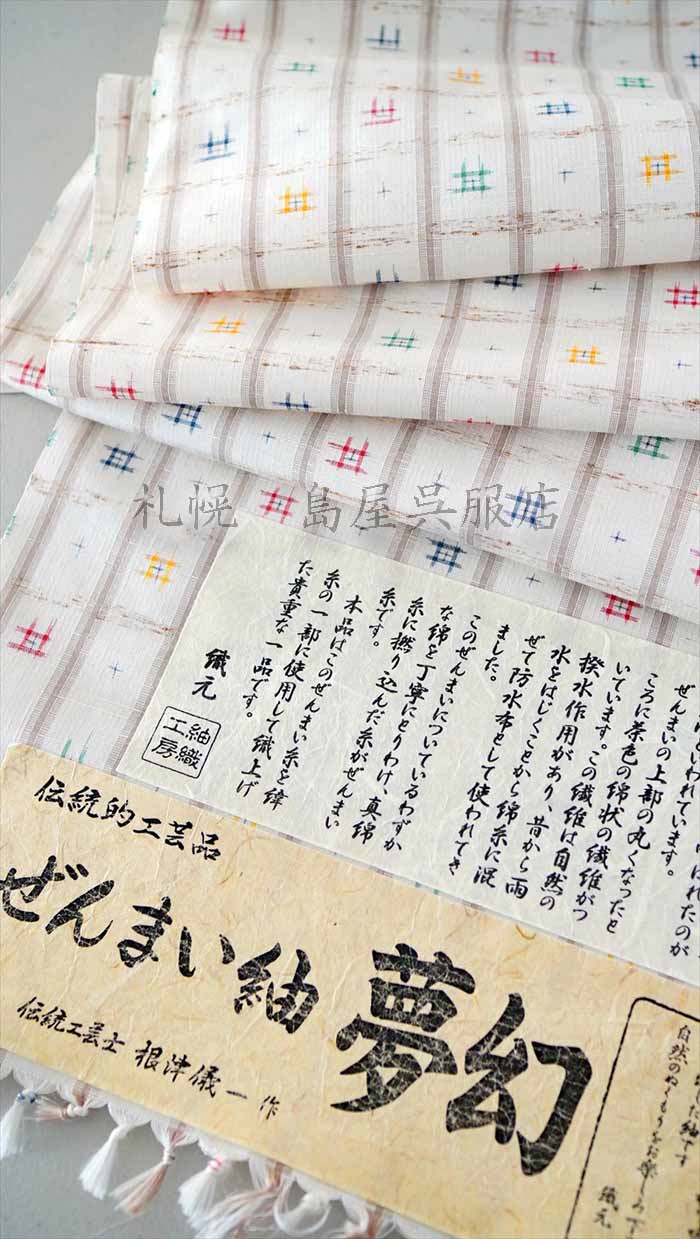 札幌 島屋呉服店
いわれています。
ぜんまいの上部の丸くなったと
ころに茶色の綿状の繊維がつ
いています。この繊維は自然の
揆水作用があり、昔から雨
水をはじくことから綿糸に混
ぜて防水布として使われてき
ました。
このぜんまいについているわずか
な綿を丁寧にとりわけ、真綿
糸に撚り込んだ糸がぜんまい
糸です。
本品はこのぜんまい糸を緯
糸の一部に使用して織上げ
た貴重な一品です。
織元
紬織
工房
伝統的工芸品
ぜんまい紬 夢幻
伝統工芸士 根津儀一 作
した紬です
自然のぬくもりをお楽しみ下
織元